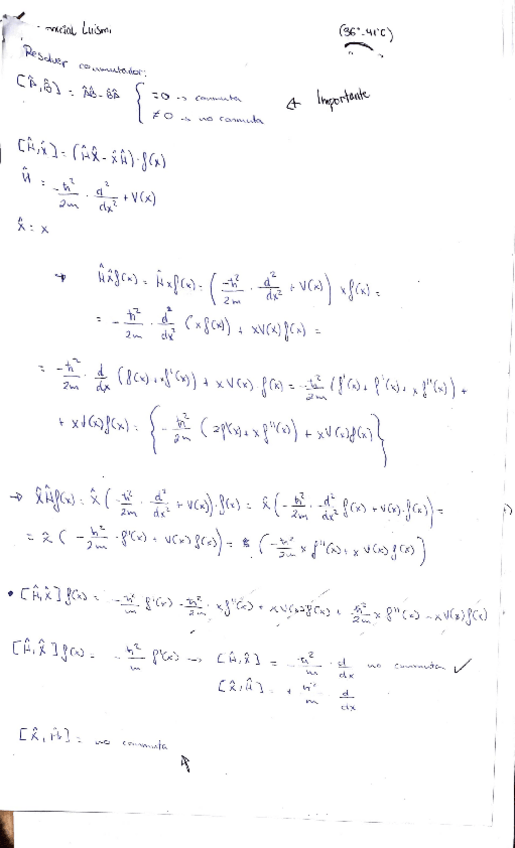 Luismi
(36°-41°C)
Resolver conmutador:
[Â,B̂] = ÂB̂-B̂Â { =0 → conmuta
≠0 → no conmuta
← Importante
[Ĥ,x̂] = (Ĥx̂ - x̂Ĥ)·f(x)
Ĥ = -ħ²/2m · d²/dx² + V(x)
x̂ = x
→ Ĥx̂f(x) = Ĥxf(x) = (-ħ²/2m · d²/dx² + V(x)) xf(x) =
= -ħ²/2m · d²/dx² (xf(x)) + xV(x)f(x) =
= -ħ²/2m · d/dx (f(x)+xf'(x)) + xV(x) f(x) = -ħ²/2m (f'(x)+f'(x)+xf''(x)) +
+ xV(x)f(x) = {-ħ²/2m (2f'(x)+xf''(x)) + xV(x)f(x)}
→ x̂Ĥf(x) = x̂(-ħ²/2m · d²/dx² + V(x))·f(x) = x̂(-ħ²/2m · d²/dx² f(x) + V(x)·f(x)) =
= x̂ (-ħ²/2m · f''(x) + V(x)f(x)) = (-ħ²/2m x f''(x) + x V(x) f(x))
• [Ĥ,x̂] f(x) = -ħ²/m f'(x) - ħ²/2m · xf''(x) + xV(x)f(x) + ħ²/2m x f''(x) - xV(x)f(x)
[Ĥ,x̂] f(x) = -ħ²/m f'(x) → [Ĥ,x̂] = -ħ²/m · d/dx no conmutan ✓
[x̂,Ĥ] + ħ²/m d/dx
no conmuta